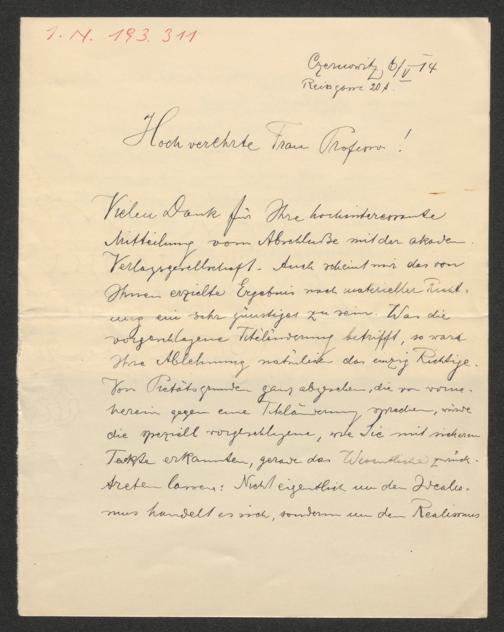 I. N. 193.311
Czernowitz, 6/V 14
Reissgasse 20A.
Hochverehrte Frau Professor!
Vielen Dank für Ihre hochinteressante
Mitteilung vom Abschluße mit der akadem.
Verlagsgesellschaft. Auch scheint mir das von
Ihnen erzielte Ergebnis nach materieller Richt-
ung ein sehr günstiges zu sein. Was die
vorgeschlagene Titeländerung betrifft, so war
Ihre Ablehnung natürlich das einzig Richtige.
Von Pietätsgründen ganz abgesehen, die von vorne-
herein gegen eine Titeländerung sprechen, würde
die speziell vorgeschlagene, wie Sie mit sicherem
Takte erkannten, gerade das Wesentliche zurück-
treten lassen: Nicht eigentlich um den Idealis-
mus handelt es sich, sondern um den Realismus